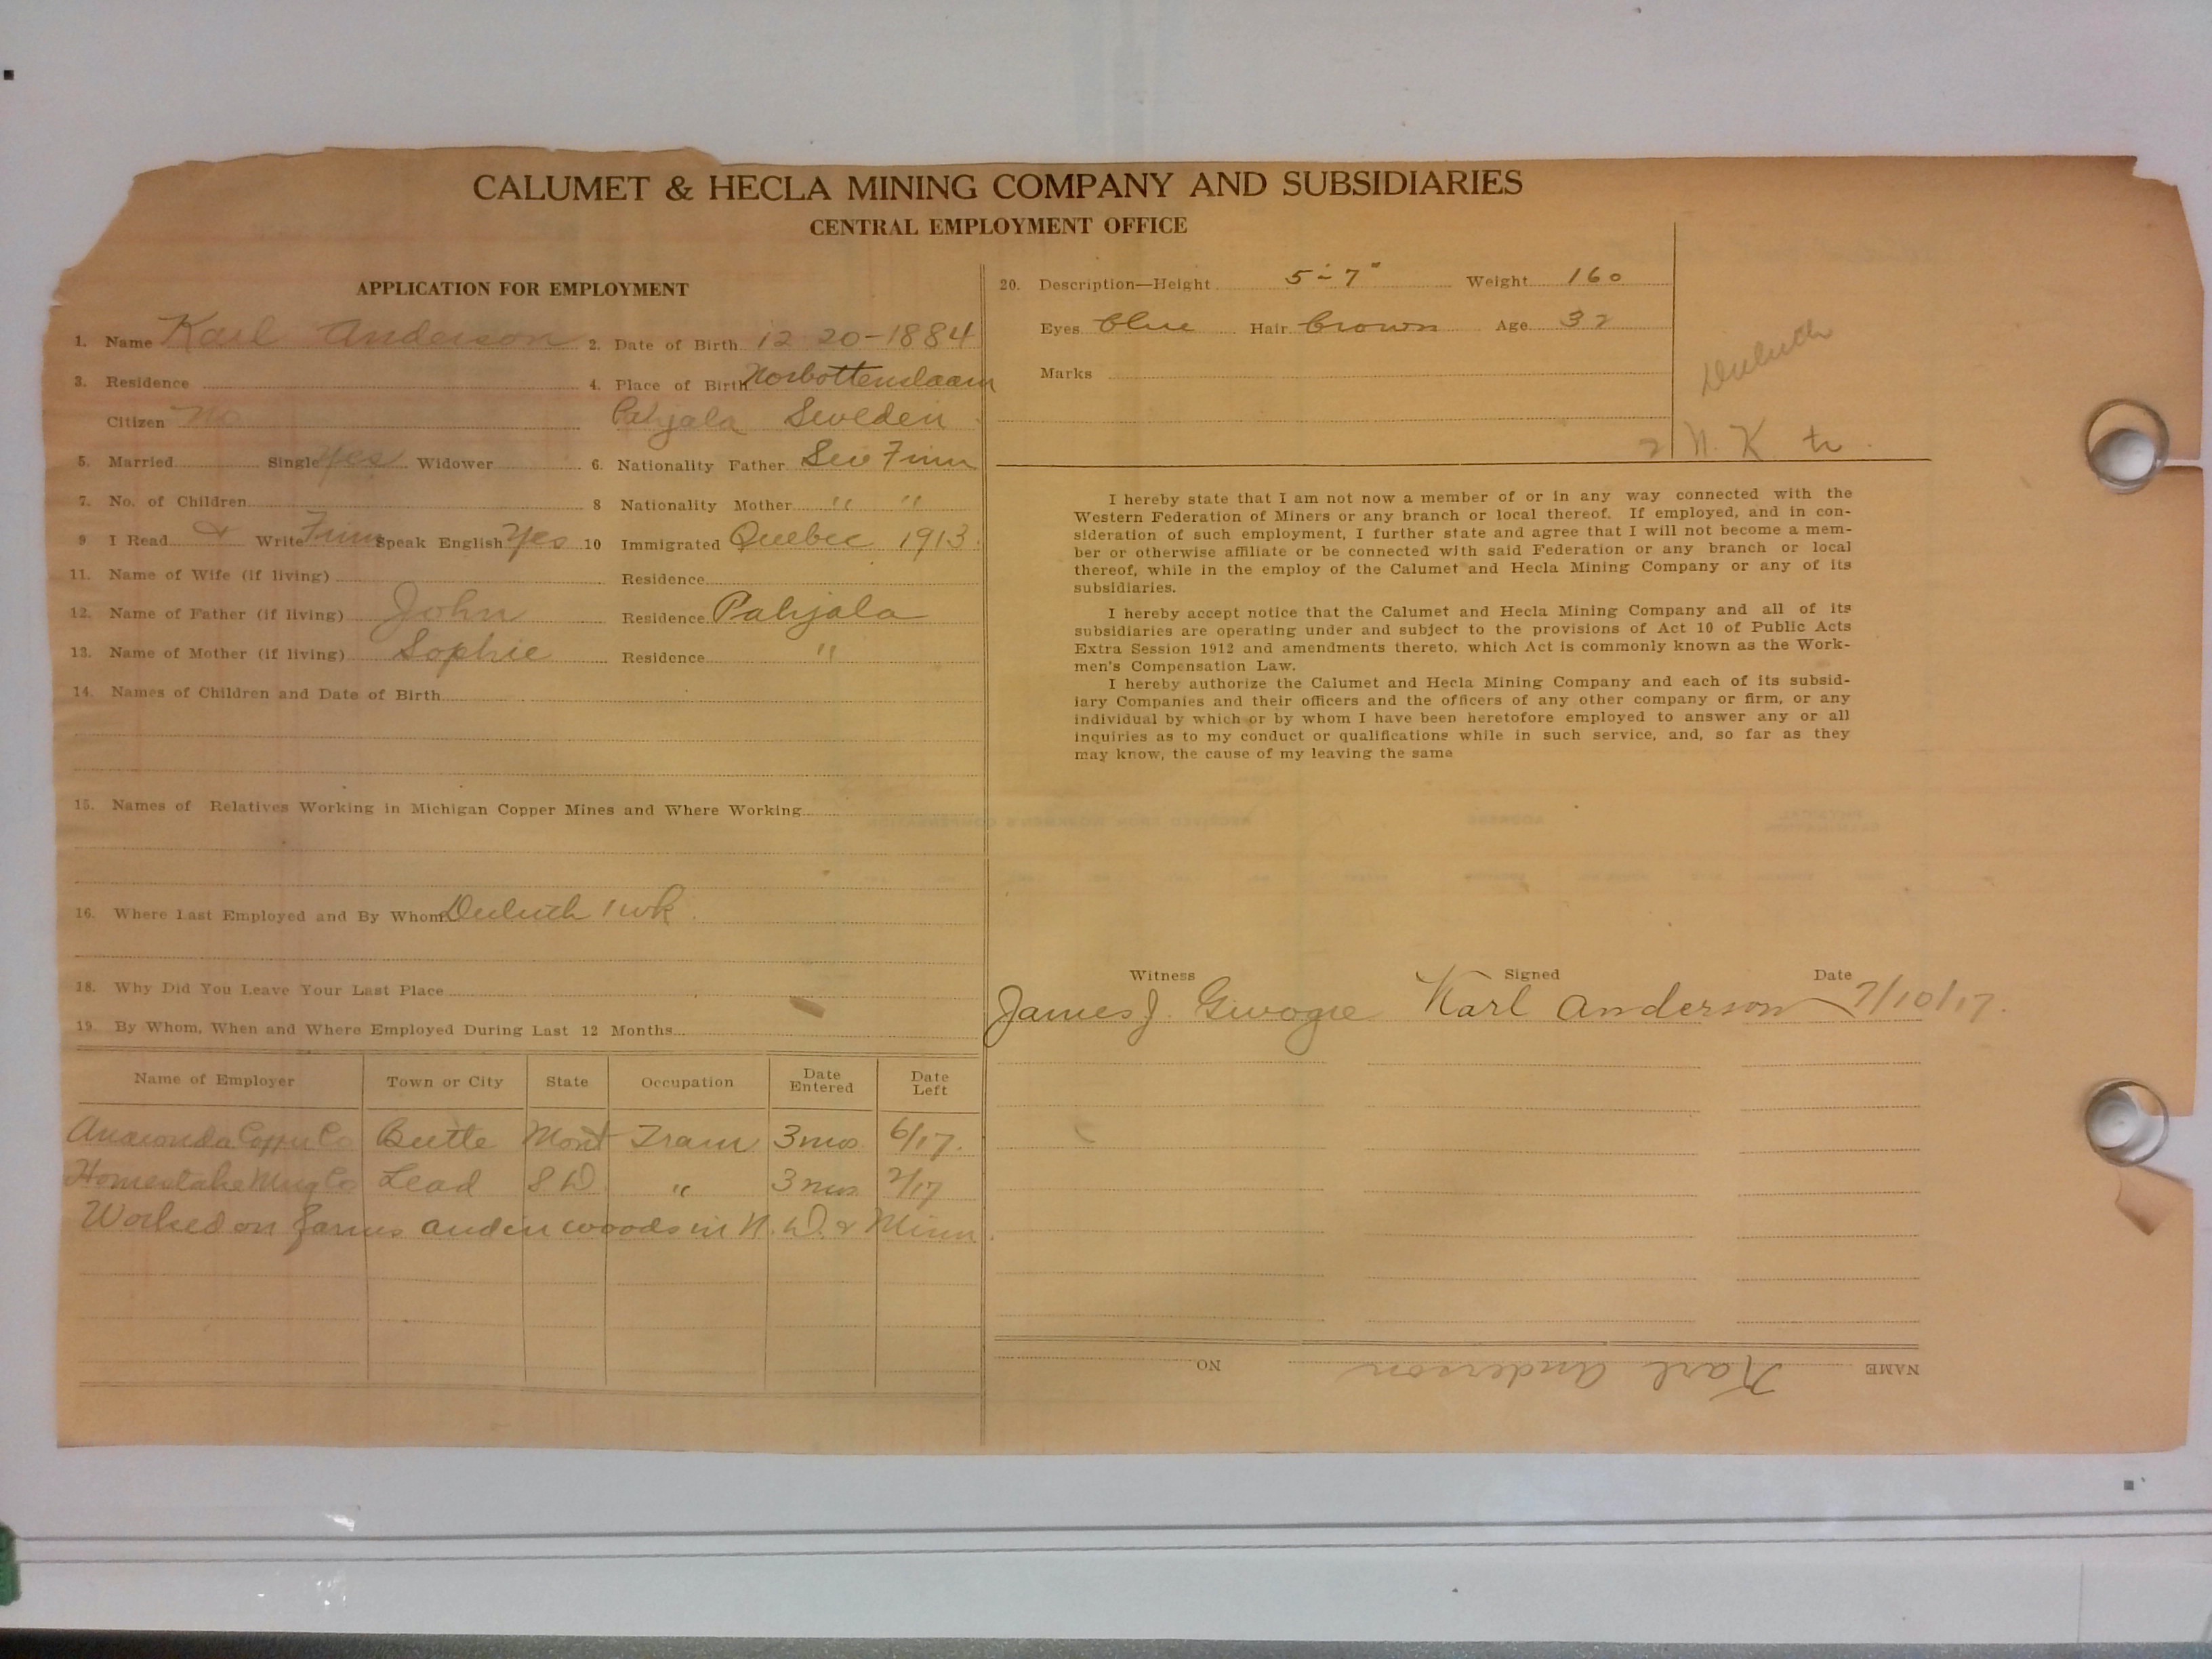 CALUMET & HECLA MINING COMPANY AND SUBSIDIARIES
CENTRAL EMPLOYMENT OFFICE
APPLICATION FOR EMPLOYMENT
1. Name Karl Anderson 2. Date of Birth 12 20-1884
3. Residence 4. Place of Birth Norbottenslaam
Citizen No Pahjala Sweden
5. Married Single Yes Widower 6. Nationality Father Swe Finn
7. No. of Children 8 Nationality Mother " "
9 I Read & Write Finn Speak English Yes 10 Immigrated Quebec 1913
11. Name of Wife (if living) Residence
12. Name of Father (if living) John Residence Pahjala
13. Name of Mother (if living) Sophie Residence "
14. Names of Children and Date of Birth
15. Names of Relatives Working in Michigan Copper Mines and Where Working
16. Where Last Employed and By Whom Duluth 1 wk.
18. Why Did You Leave Your Last Place
19. By Whom, When and Where Employed During Last 12 Months
Name of Employer Town or City State Occupation Date Entered Date Left
Anaconda Copper Co Butte Mont Tram 3 mos 6/17.
Homestake Mng Co Lead S D. " 3 mos 2/17
Worked on farms and in woods in N. D. & Minn.
20. Description—Height 5-7" Weight 160
Eyes blue Hair brown Age 32
Marks
Duluth
N. K tr.
I hereby state that I am not now a member of or in any way connected with the
Western Federation of Miners or any branch or local thereof. If employed, and in con-
sideration of such employment, I further state and agree that I will not become a mem-
ber or otherwise affiliate or be connected with said Federation or any branch or local
thereof, while in the employ of the Calumet and Hecla Mining Company or any of its
subsidiaries.
I hereby accept notice that the Calumet and Hecla Mining Company and all of its
subsidiaries are operating under and subject to the provisions of Act 10 of Public Acts
Extra Session 1912 and amendments thereto, which Act is commonly known as the Work-
men's Compensation Law.
I hereby authorize the Calumet and Hecla Mining Company and each of its subsid-
iary Companies and their officers and the officers of any other company or firm, or any
individual by which or by whom I have been heretofore employed to answer any or all
inquiries as to my conduct or qualifications while in such service, and, so far as they
may know, the cause of my leaving the same
Witness Signed Date
James J. Karl Anderson 7/10/17.
NAME Karl Anderson NO